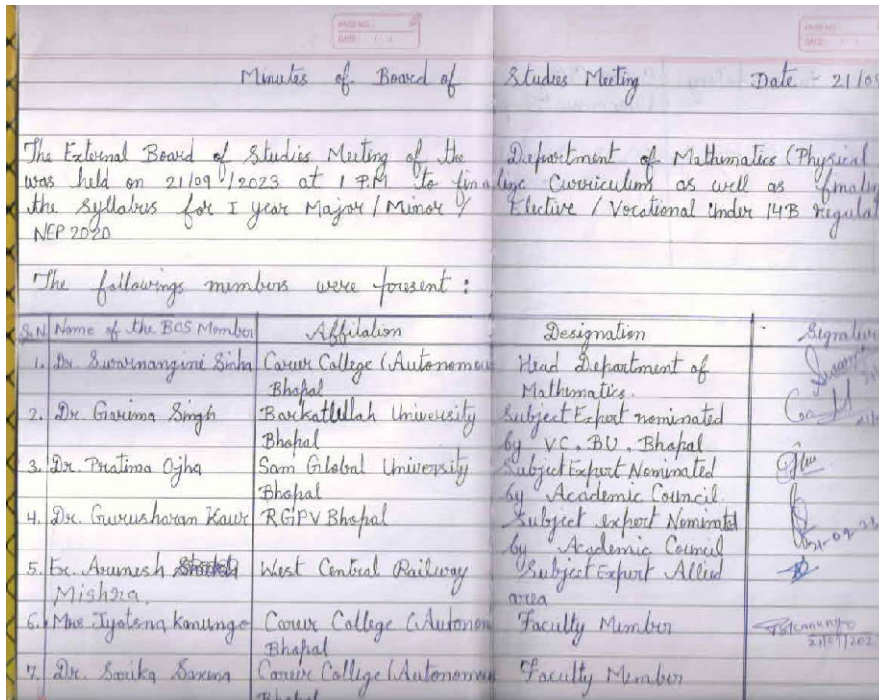 PAGE NO.
DATE: / /
PAGE NO.
DATE: / /
Minutes of Board of Studies Meeting Date - 21/09
The External Board of Studies Meeting of the Department of Mathematics (Physical
was held on 21/09/2023 at 1 P.M to finalize Curriculums as well as finali
the Syllabus for I year Major / Minor / Elective / Vocational Under 14B regulat
NEP 2020
The followings members were present :
S.N Name of the BOS Member Affilation Designation Signature
1. Dr. Swarnangini Sinha Career College (Autonomous Head Department of
Bhopal Mathematics.
2. Dr. Garima Singh Barkatllah University Subject Expert nominated
Bhopal by V.C. BU. Bhopal
3. Dr. Pratima Ojha Sam Global University Subject Expert Nominated
Bhopal by Academic Council.
4. Dr. Gurusharan Kaur RGPV Bhopal Subject expert Nominated
by Academic Council
5. Er. Arunesh West Central Railway Subject Expert Allied
Mishra. area
6. Mrs Jyotsna Kanungo Career College (Autonom Faculty Member
Bhopal 21/09/202
7. Dr. Sarika Saxena Career College (Autonomous Faculty Member
Bhopal